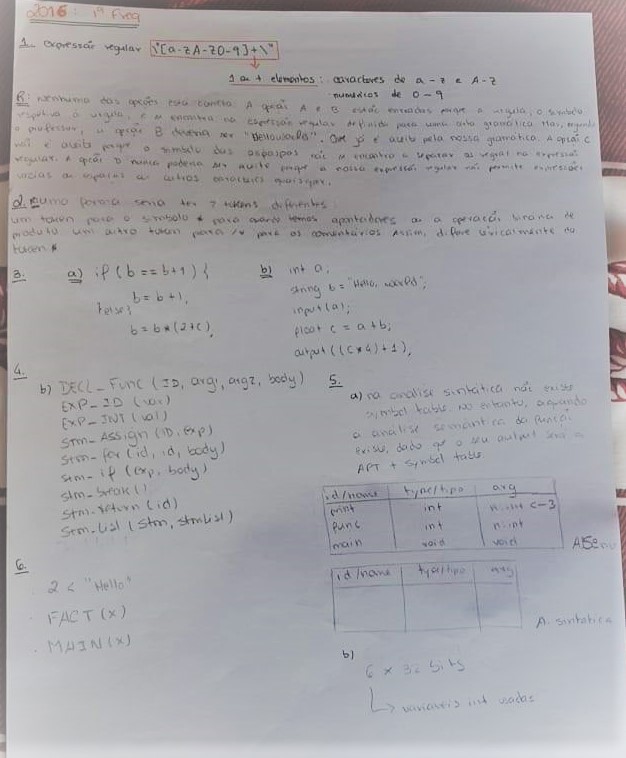 2016: 1ª Freq
1. Expressão regular \"[a-zA-Z0-9]+\"
1 ou + elementos: caracteres de a-z e A-Z
numéricos de 0-9
R: nenhuma das opções está correta. A opção A e B estão erradas porque a vírgula, o símbolo
respetivo à vírgula, encontra na expressão regular definida para uma certa gramática
o professor, a opção B deveria ser "HelloWorld". Que já é aceite pela nossa gramática. A opção C
não é aceite porque o símbolo das aspas não encontra a separar as na expressão
regular. A opção D nunca poderia ser aceite porque a nossa expressão regular não permite expressões
vazias ou espaços ou outros caracteres quaisquer.
2. uma forma seria ter 2 tokens diferentes:
um token para o símbolo * para quando temos apontadores ou a operação binária de
produto um outro token para /* para os comentários Assim, difere lexicalmente do
token *
3.
a) if (b == b+1) {
b = b+1;
}else{
b = b*(2+c);
b) int a;
string b = "Hello, world";
input(a);
float c = a+b;
output((c*4)+1);
4.
b) DECL_Func (ID, arg1, arg2, body)
EXP_ID (val)
EXP_INT (val)
Stm_Assign (ID, Exp)
Stm_for (id, id, body)
Stm_if (Exp, body)
Stm_break ()
Stm_return (id)
Stm_List (Stm, StmList)
5.
a) na análise sintática não existe
symbol table. No entanto, aquando
a análise semântica da função
existe, dado que o seu output será a
APT + symbol table.
id/name type/tipo arg
print int n:int <-3
func int n:int
main void void
id/name type/tipo arg
A. sintática
b)
6 x 32 bits
↳ variáveis int usadas
6.
. 2 < "Hello"
. FACT(X)
. MAIN(X)